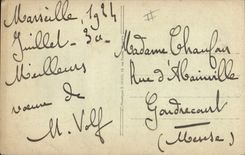 Marseille, 1924
Juillet - 30 -
Meilleurs
vœux de
M. Volf
Madame Chaufour
Rue d'Abainville
Gondrecourt
(Meuse)